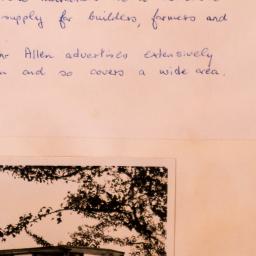 supply for builders, farmers and
Allen advertises extensively
and so covers a wide area.